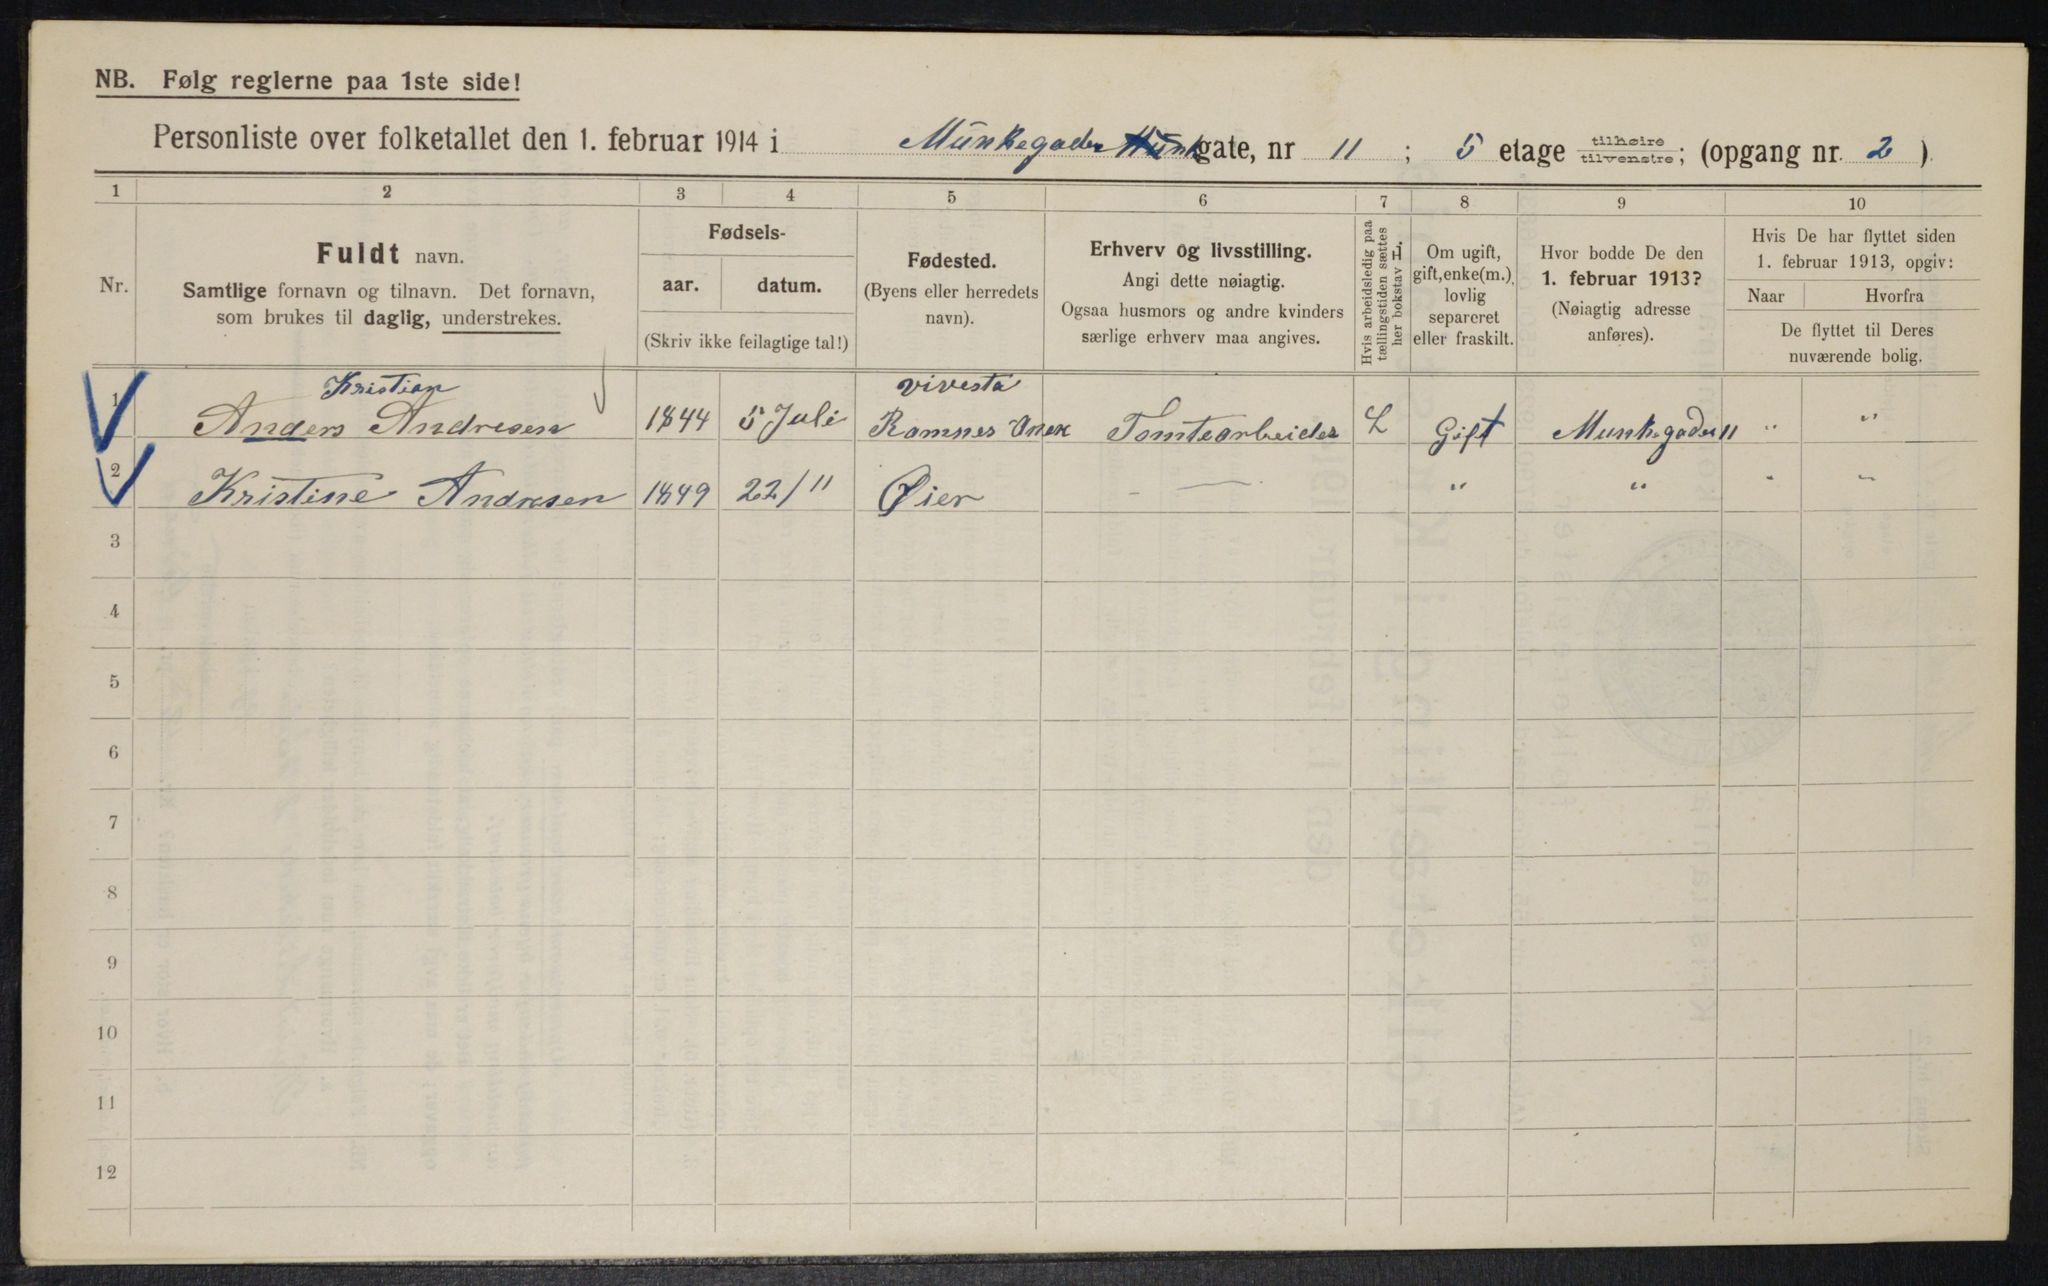 NB. Følg reglerne paa 1ste side!
Personliste over folketallet den 1. februar 1914 i Munkegaden gate, nr 11 ; 5 etage tilhøire tilvenstre; (opgang nr. 2 )
1 2 3 4 5 6 7 8 9 10
Nr.
Fuldt navn.
Samtlige fornavn og tilnavn. Det fornavn,
som brukes til daglig, understrekes.
Fødsels-
aar. datum.
(Skriv ikke feilagtige tal!)
Fødested.
(Byens eller herredets
navn).
Erhverv og livsstilling.
Angi dette nøiagtig.
Ogsaa husmors og andre kvinders
særlige erhverv maa angives.
Hvis arbeidsledig paa
tællingstiden sættes
her bokstav L.
Om ugift,
gift, enke(m.),
lovlig
separeret
eller fraskilt.
Hvor bodde De den
1. februar 1913?
(Nøiagtig adresse
anføres).
Hvis De har flyttet siden
1. februar 1913, opgiv:
Naar Hvorfra
De flyttet til Deres
nuværende bolig.
Kristian vivesta
1 Anders Andresen 1844 5 Juli Ramnes Tomtearbeider L Gift Munkegaden 11 " "
2 Kristine Andresen 1849 22/11 Øier - — " " " "
3
4
5
6
7
8
9
10
11
12